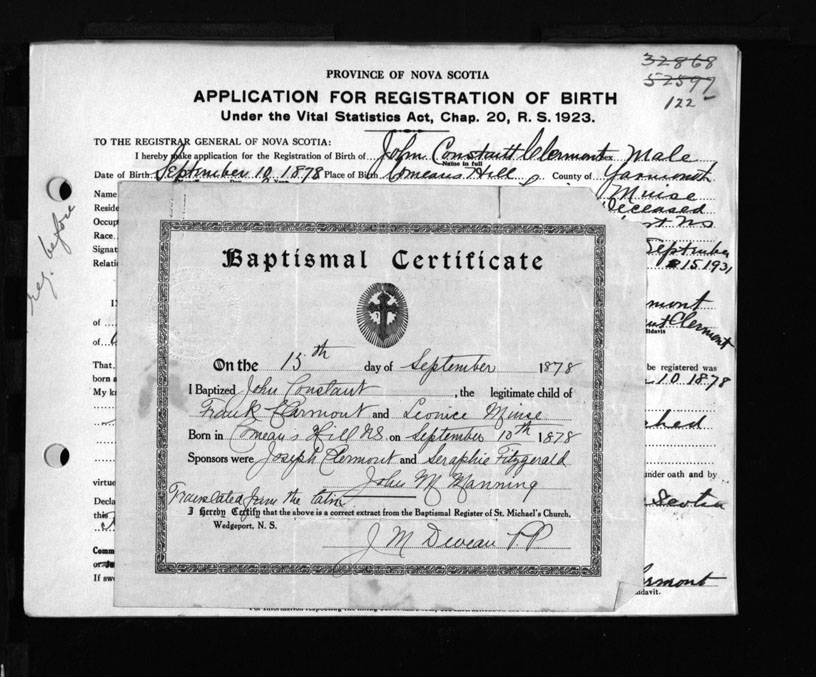 32868
52597
122
PROVINCE OF NOVA SCOTIA
APPLICATION FOR REGISTRATION OF BIRTH
Under the Vital Statistics Act, Chap. 20, R. S. 1923.
TO THE REGISTRAR GENERAL OF NOVA SCOTIA:
I hereby make application for the Registration of Birth of John Constant Clermont Sex Male
Name in full
Date of Birth September 10 1878 Place of Birth Comeaus Hill County of Yarmouth
Name Muise
Reside Deceased
Occup
Race
Signat September
Relati 15 1931
reg. before
mont
of Clermont
of
That be registered was
born a 10 1878
My k
ched
under oath and by
virtue
Decla Scotia
this
Comm
If swo rmont
Baptismal Certificate
On the 15th day of September 1878
I Baptized John Constant, the legitimate child of
Frank Clarmont and Leonice Muise
Born in Comeau's Hill N.S. on September 10th 1878
Sponsors were Joseph Clermont and Seraphie Fitzgerald
John M Manning
Translated from the latin
I Hereby Certify that the above is a correct extract from the Baptismal Register of St. Michael's Church,
Wedgeport, N. S.
J M Deveau PP